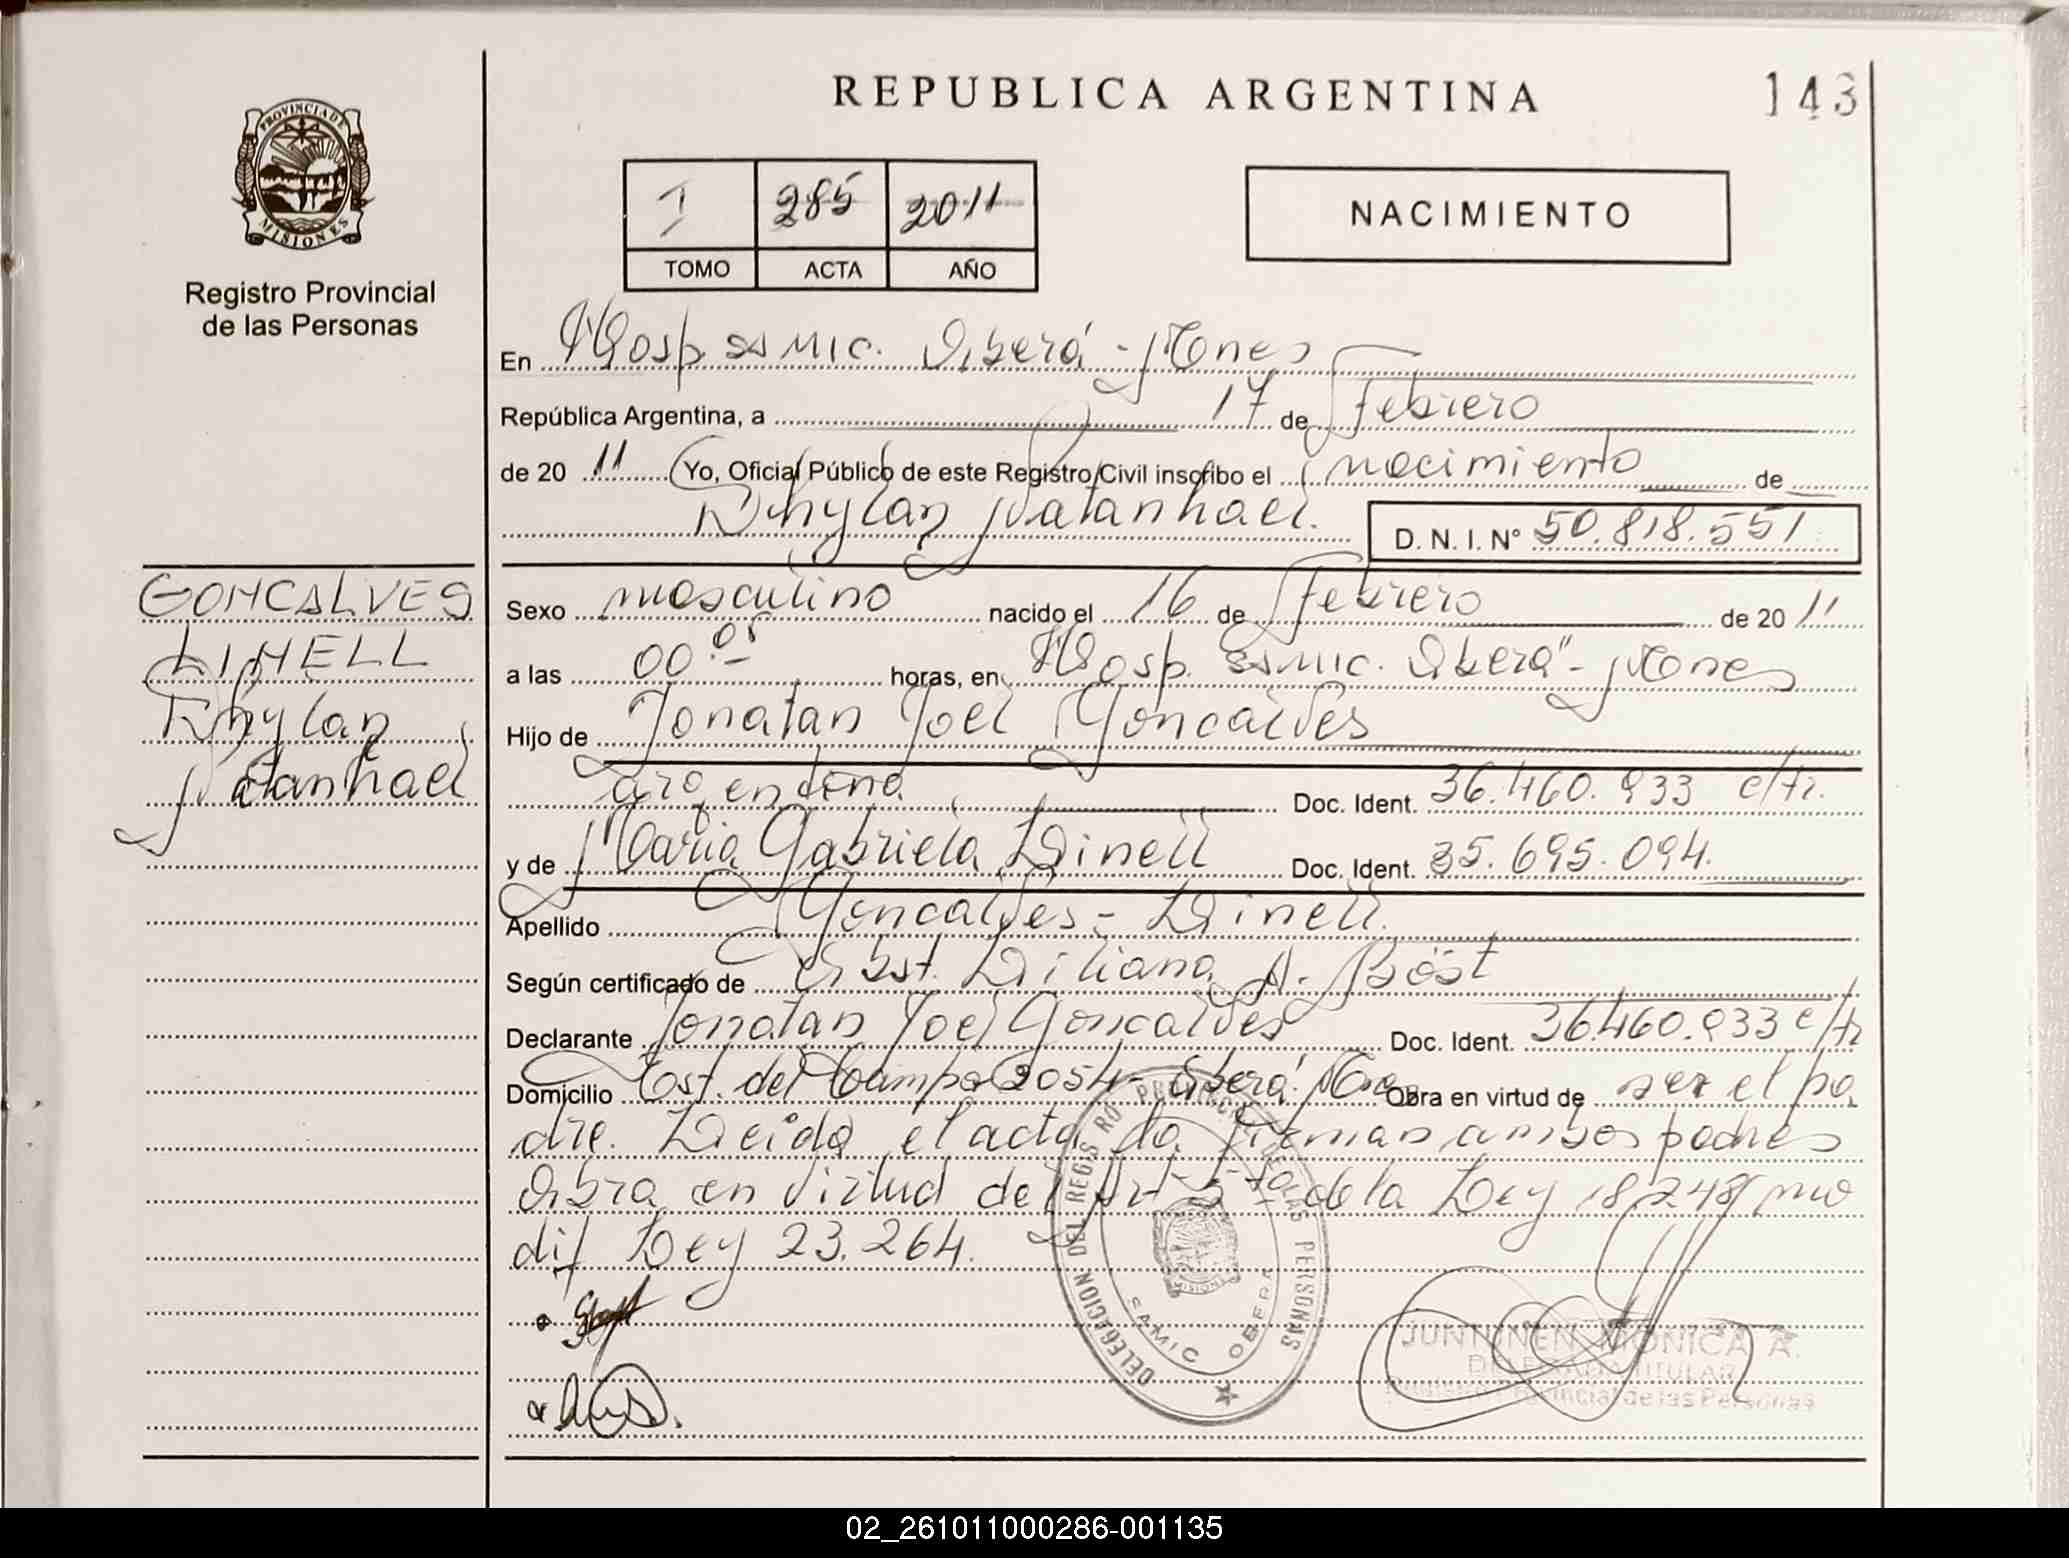 REPUBLICA ARGENTINA
143
PROVINCIA DE
MISIONES
Registro Provincial
de las Personas
I 285 2011
TOMO ACTA AÑO
NACIMIENTO
En Hosp. Samic. Oberá - Mones
República Argentina, a 17 de Febrero
de 20 11 Yo, Oficial Público de este Registro Civil inscribo el nacimiento de
Dhylan Natanhael.
D. N. I. N° 50.818.551
GONCALVES
LINELL
Dhylan
Natanhael
Sexo masculino nacido el 16 de Febrero de 20 11
a las 00 05 horas, en Hosp. Samic. Oberá - Mones
Hijo de Jonatan Joel Goncalves
argentina Doc. Ident. 36.460.933 c/tr.
y de Maria Gabriela Linell Doc. Ident. 35.695.094.
Apellido Goncalves - Linell.
Según certificado de Obst. Liliana A. Böst
Declarante Jonatan Joel Goncalves Doc. Ident. 36.460.933 c/tr
Domicilio Cst. del Campo 2054 - Oberá. Mnes Obra en virtud de ser el pa
dre. Leida el acta la firman ambos padres
Obra en virtud del Art 5to de la Ley 18.248 mo
dif Ley 23.264.
DELEGACION DEL REGISTRO PROVINCIAL DE LAS PERSONAS
MISIONES
SAMIC OBERA
JUNTUNEN MONICA A.
DELEGADA TITULAR
Registro Provincial de las Personas
02_261011000286-001135